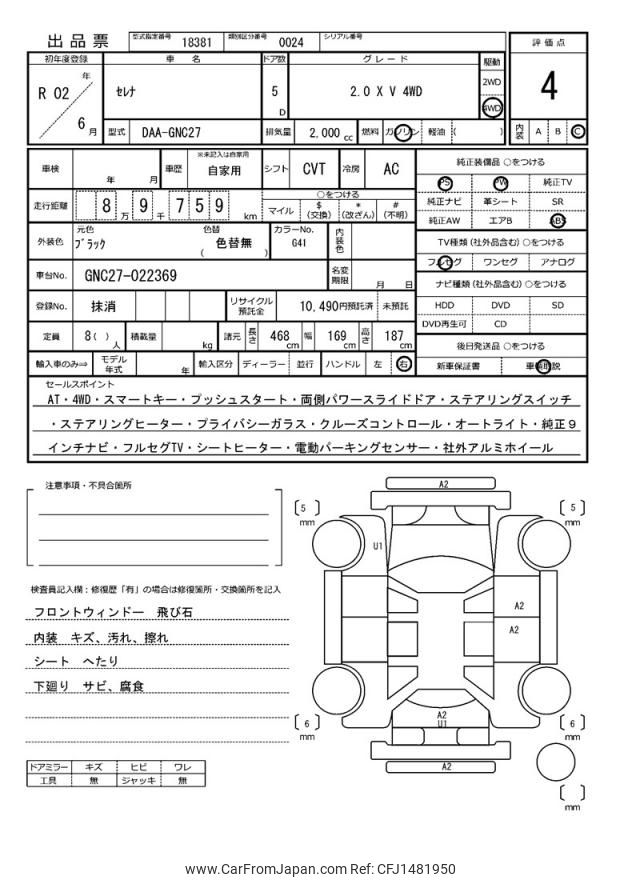 出品票 型式指定番号 18381 類別区分番号 0024 シリアル番号
初年度登録 車名 ドア数 グレード 駆動 評価点
R 02 年 6 月 セレナ 5 D 2.0 X V 4WD 2WD 4WD 4
型式 DAA-GNC27 排気量 2,000 cc 燃料 ガソリン 軽油 ( ) 内装 A B C
車検 年 月 車歴 ※未記入は自家用 自家用 シフト CVT 冷房 AC
走行距離 8 万 9 千 7 5 9 km ○をつける マイル $(交換) *(改ざん) #(不明)
外装色 元色 ブラック 色替 ( 色替無 ) カラーNo. G41 内装色
車台No. GNC27-022369 名変期限 月 日
登録No. 抹消 リサイクル預託金 10,490円預託済 未預託
定員 8( ) 人 積載量 kg 諸元 長さ 468 cm 幅 169 cm 高さ 187 cm
輸入車のみ⇒ モデル年式 年 輸入区分 ディーラー 並行 ハンドル 左 右
純正装備品 ○をつける
PS PW 純正TV
純正ナビ 革シート SR
純正AW エアB ABS
TV種類 (社外品含む) ○をつける
フルセグ ワンセグ アナログ
ナビ種類 (社外品含む) ○をつける
HDD DVD SD
DVD再生可 CD
後日発送品 ○をつける
新車保証書 車輌取説
セールスポイント
AT・4WD・スマートキー・プッシュスタート・両側パワースライドドア・ステアリングスイッチ
・ステアリングヒーター・プライバシーガラス・クルーズコントロール・オートライト・純正9
インチナビ・フルセグTV・シートヒーター・電動パーキングセンサー・社外アルミホイール
注意事項・不具合箇所
検査員記入欄：修復歴「有」の場合は修復箇所・交換箇所を記入
フロントウィンドー 飛び石
内装 キズ、汚れ、擦れ
シート へたり
下廻り サビ、腐食
ドアミラー キズ ヒビ ワレ
工具 無 ジャッキ 無
A2
[ 5 ] mm [ 5 ] mm
U1
A2
A2
A2
U1
[ 6 ] mm [ 6 ] mm
A2
[ ] mm
www.CarFromJapan.com Ref: CFJ1481950